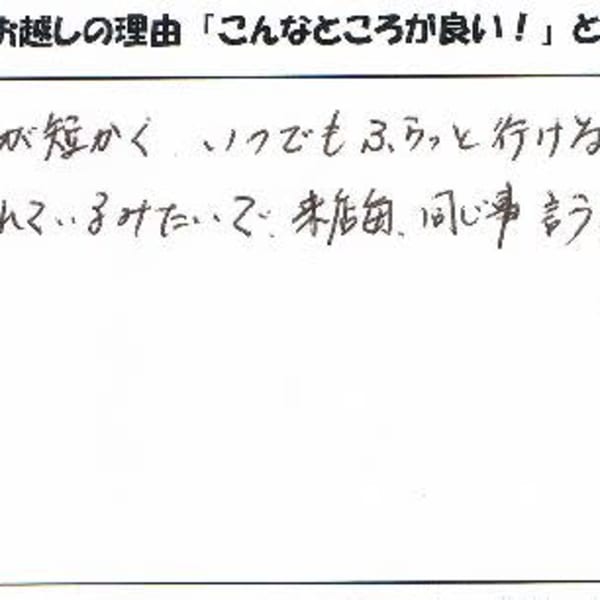 お越しの理由「こんなところが良い！」と
が短かく、いつでもふらっと行ける
れているみたいで、来店毎、同じ事言う